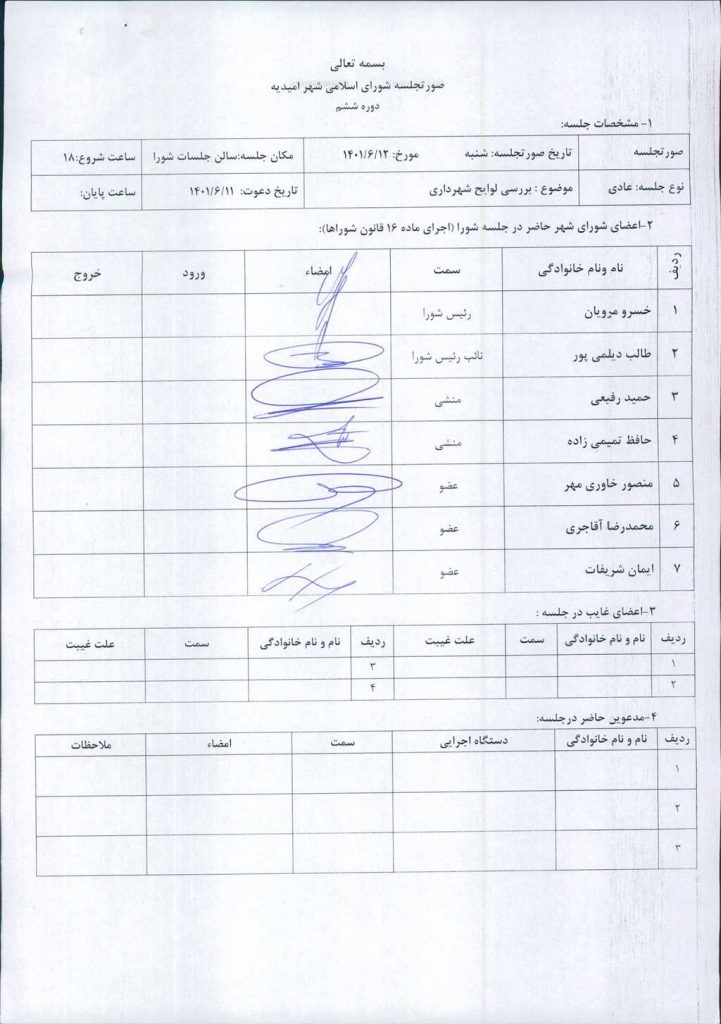 بسمه تعالی
صورتجلسه شورای اسلامی شهر امیدیه
دوره ششم
۱- مشخصات جلسه:
صورتجلسه تاریخ صورتجلسه: شنبه مورخ: ۱۴۰۱/۶/۱۲ مکان جلسه:سالن جلسات شورا ساعت شروع:۱۸
نوع جلسه: عادی موضوع : بررسی لوایح شهرداری تاریخ دعوت: ۱۴۰۱/۶/۱۱ ساعت پایان:
۲-اعضای شورای شهر حاضر در جلسه شورا (اجرای ماده ۱۶ قانون شوراها):
ردیف نام ونام خانوادگی سمت امضاء ورود خروج
۱ خسرو مرویان رئیس شورا
۲ طالب دیلمی پور نائب رئیس شورا
۳ حمید رفیعی منشی
۴ حافظ تمیمی زاده منشی
۵ منصور خاوری مهر عضو
۶ محمدرضا آقاجری عضو
۷ ایمان شریفات عضو
۳-اعضای غایب در جلسه :
ردیف نام و نام خانوادگی سمت علت غیبت ردیف نام و نام خانوادگی سمت علت غیبت
۱ ۳
۲ ۴
۴-مدعوین حاضر درجلسه:
ردیف نام و نام خانوادگی دستگاه اجرایی سمت امضاء ملاحظات
۱
۲
۳